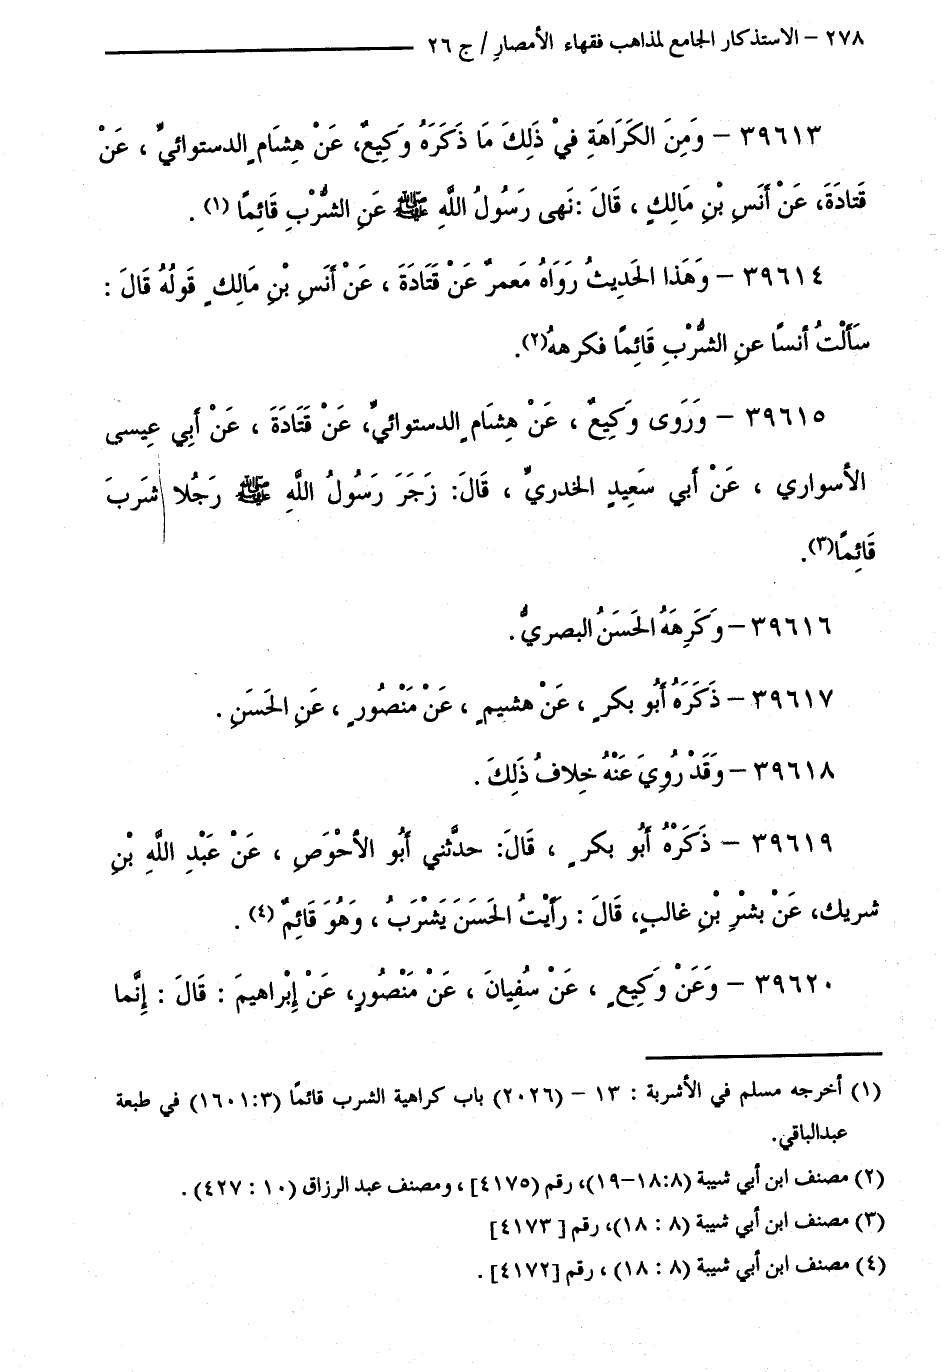 ٢٧٨ – الاستذكار الجامع لمذاهب فقهاء الأمصارِ / ج ٢٦
٣٩٦١٣ – وَمِنَ الكَرَاهَةِ فِيْ ذَلِكَ مَا ذَكَرَهُ وَكِيعٌ، عَنْ هِشَامٍ الدستوائيِّ ، عَنْ
قَتادَةَ، عَنْ أَنَسِ بْنِ مَالِكٍ ، قَالَ :نَهى رَسُولُ اللَّهِ ﷺ عَنِ الشُّرْبِ قَائِمًا (١) .
٣٩٦١٤ – وَهَذا الحَدِيثُ رَوَاهُ مَعمرٌ عَنْ قَتَادَةَ ، عَنْ أَنَسِ بْنِ مَالِكٍ قَولُهُ قَالَ :
سَأَلْتُ أنسًا عنِ الشُّرْبِ قَائِمًا فكرههُ(٢).
٣٩٦١٥ – وَرَوَى وَكِيعٌ ، عَنْ هِشِامٍ الدستوائيِّ، عَنْ قَتَادَةَ ، عَنْ أَبِي عِيسى
الأسواري ، عَنْ أَبي سَعِيدٍ الخدريِّ ، قَالَ: زَجَرَ رَسُولُ اللَّهِ ﷺ رَجُلا شَرَبَ
قَائِمًا(٣).
٣٩٦١٦ – وَكَرِهَهُ الحَسَنُ البصريُّ .
٣٩٦١٧ – ذَكَرَهُ أَبُو بكرٍ ، عَنْ هشيمٍ ، عَنْ مَنْصُورٍ ، عَنِ الحَسَنِ .
٣٩٦١٨ – وَقَدْ رُوِيَ عَنْهُ خِلافُ ذَلِكَ .
٣٩٦١٩ – ذَكَرَهُ أَبُو بكرٍ ، قَالَ: حدثَّني أَبُو الأحْوَصِ ، عَنْ عَبْدِ اللَّهِ بْنِ
شريك، عَنْ بشْرِ بْنِ غالبٍ، قَالَ : رَأَيْتُ الحَسَنَ يَشْرَبُ ، وَهُوَ قَائِمٌ (٤) .
٣٩٦٢٠ – وَعَنْ وَكِيعٍ ، عَنْ سُفِيانَ ، عَنْ مَنْصُورٍ، عَنْ إِبْراهيمَ : قَالَ : إِنَّما
(١) أخرجه مسلم في الأشربة : ١٣ – (٢٠٢٦) باب كراهية الشرب قائمًا (١٦٠١:٣) في طبعة
عبدالباقي.
(٢) مصنف ابن أبي شيبة (١٨:٨–١٩)، رقم (٤١٧٥] ، ومصنف عبد الرزاق (١٠ : ٤٢٧) .
(٣) مصنف ابن أبي شيبة (٨ : ١٨)، رقم [ ٤١٧٣]
(٤) مصنف ابن أبي شيبة (٨ : ١٨) ، رقم [٤١٧٢] .